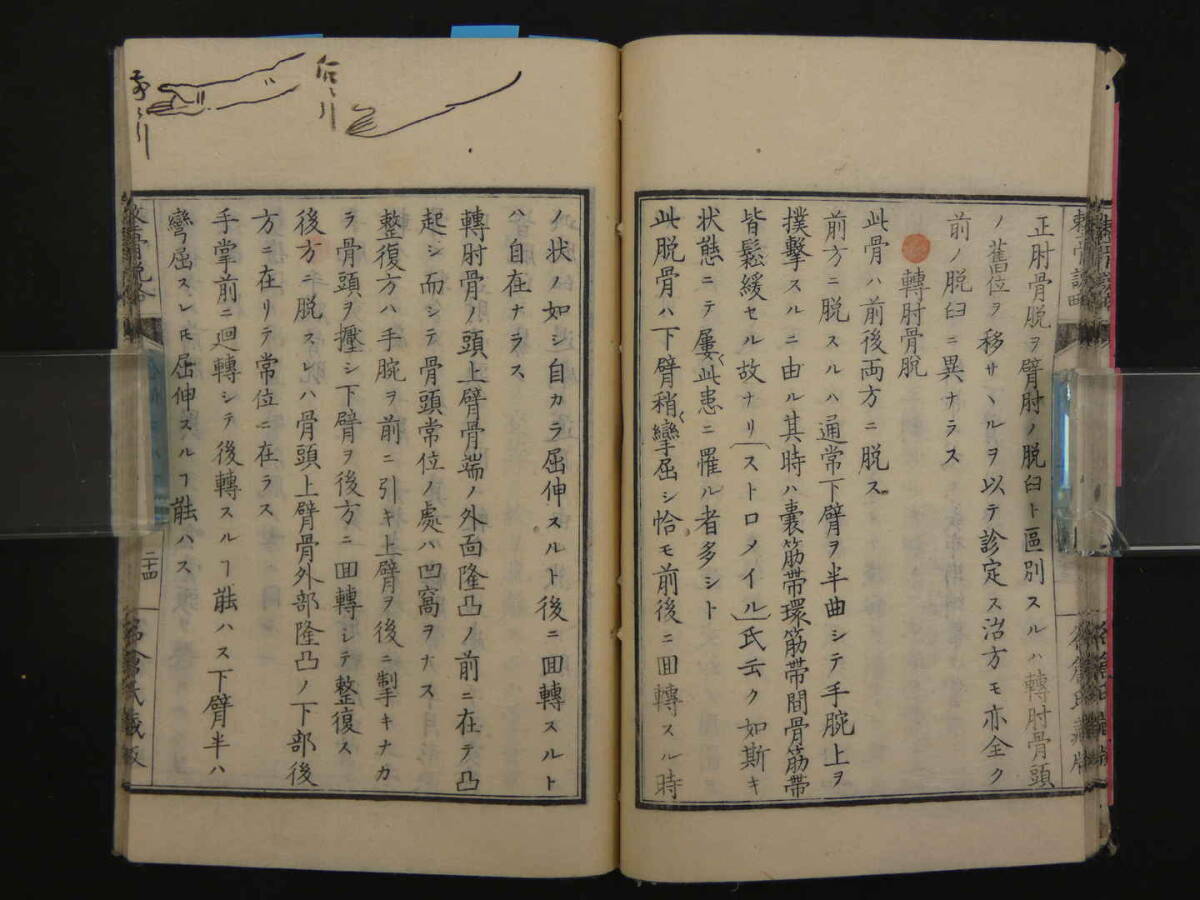 正肘骨脱ヲ臂肘ノ脱臼ト區別スルハ轉肘骨頭
ノ舊位ヲ移サヽルヲ以テ診定ス治方モ亦全ク
前ノ脱臼ニ異ナラス
轉肘骨脱
此骨ハ前後両方ニ脱ス
前方ニ脱スルハ通常下臂ヲ半曲シテ手腕上ヲ
撲撃スルニ由ル其時ハ嚢筋帯環筋帯間骨筋帯
皆鬆緩セル故ナリ「ストロメイル」氏云ク如斯キ
状態ニテ屢〻此患ニ罹ル者多シト
此脱骨ハ下臂稍〻攣屈シ恰モ前後ニ囬轉スル時
ノ状ノ如シ自カラ屈伸スルト後ニ囬轉スルト
ハ自在ナラス
轉肘骨ノ頭上臂骨端ノ外面隆凸ノ前ニ在テ凸
起シ而シテ骨頭常位ノ處ハ凹窩ヲナス
整復方ハ手腕ヲ前ニ引キ上臂ヲ後ニ掣キナカ
ラ骨頭ヲ壓シ下臂ヲ後方ニ囬轉シテ整復ス
後方ニ脱スレハ骨頭上臂骨外部隆凸ノ下部後
方ニ在リテ常位ニ在ラス
手掌前ニ迴轉シテ後轉スルヿ能ハス下臂半ハ
彎屈スレ𪜈屈伸スルヿ能ハス
二十四